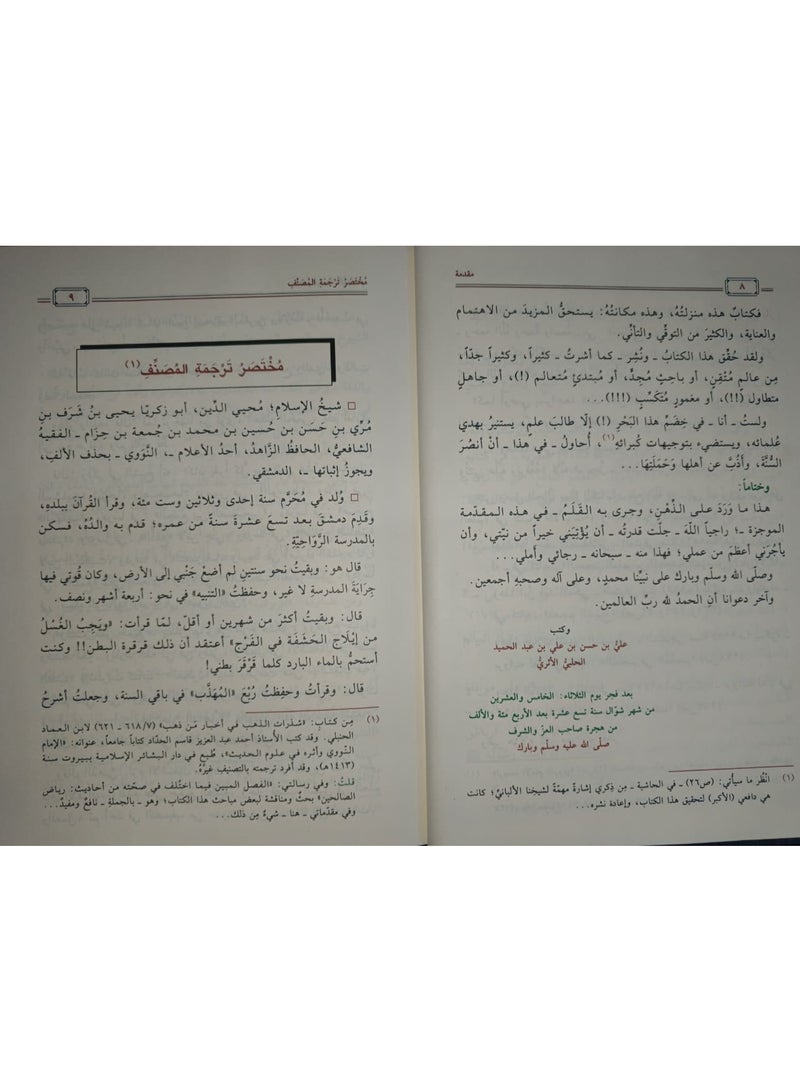 مقدمة
٨
فكتابٌ هذه منزلتُهُ، وهذه مكانتُهُ: يستحقُّ المزيدَ من الاهتمام
والعناية، والكثيرَ من التوقّي والتأنّي.
ولقد حُقِّق هذا الكتابُ ـ ونُشِر ـ كما أشرتُ ـ كثيراً، وكثيراً جدّاً،
مِن عالم مُتْقِنٍ، أو باحِثٍ مُجِدٍّ، أو مُبتدئٍ مُتعالم (!)، أو جاهلٍ
متطاول (!!)، أو مغمورٍ مُتَكَسِّبٍ (!!!)...
ولستُ ـ أنا ـ في خِضَمِّ هذا البَحْرِ (!) إلّا طالبَ علمٍ، يستنيرُ بهدي
عُلمائه، ويستضيء بتوجيهات كُبرائهِ(١)، أُحاولُ ـ في هذا ـ أنْ أنصُرَ
السُّنَّةَ، وأذُبَّ عن أهلها وَحَمَلَتِهَا...
وختاماً:
هذا ما وَرَدَ على الذِّهْنِ، وجرى به القَلَمُ ـ في هذه المقدّمة
الموجزة ـ؛ راجياً اللَّهَ ـ جلّت قدرتُه ـ أن يُؤْتِيَني خيراً من نيّتي، وأن
يأجُرَني أعظمَ من عملي؛ فهذا منه ـ سبحانه ـ رجائي وأملي...
وصلّى الله وسلّم وبارك على نبيِّنا محمدٍ، وعلى آله وصحبهِ أجمعين.
وآخر دعوانا أنِ الحمدُ لله ربّ العالمين.
وكتب
عليُّ بن حسن بن علي بن عبد الحميد
الحلبيُّ الأثريُّ
بعد فجر يوم الثلاثاء: الخامس والعشرين
من شهر شوّال سنة تسع عشرة بعد الأربع مئة والألف
من هجرة صاحب العزّ والشرف
صلّى الله عليه وسلّم وبارك
(١) انْظُر ما سيأتي: (ص٢٦) ـ في الحاشية ـ مِن ذِكري إشارةً مهمّةً لشيخِنا الألبانيِّ؛ كانت
هي دافعي (الأكبر) لتحقيق هذا الكتاب، وإعادة نشره...
مُخْتَصَرُ تَرْجَمَةِ المُصَنِّفِ
٩
مُخْتَصَرُ تَرْجَمَةِ المُصَنِّفِ(١)
□ شيخُ الإسلامِ؛ مُحيي الدِّين، أبو زكريّا يحيى بنُ شَرَف بنِ
مُرِّي بنِ حَسَن بن حُسين بن محمد بن جُمعة بن حِزَام ـ الفقيهُ
الشافعيُّ، الحافظُ الزَّاهدُ، أحدُ الأعلام ـ، النَّوَوي ـ بحذف الألفِ،
ويجوزُ إثباتها ـ، الدمشقي.
□ وُلد في مُحَرَّم سنة إحدى وثلاثين وست مئة، وقرأ القُرآنَ ببلدهِ،
وقَدِمَ دمشقَ بعد تسعَ عشرةَ سنةً من عمره؛ قدم به والدُهُ، فسكن
بالمدرسة الرَّوَاحِيَّةِ.
قال هو: وبقيتُ نحو سنتين لم أضعْ جَنْبي إلى الأرض، وكان قُوتي فيها
جِرَايَةَ المدرسةِ لا غير، وحفظتُ «التنبيه» في نحو: أربعة أشهر ونصف.
قال: وبقيتُ أكثرَ من شهرين أو أقلّ، لمّا قرأت: «ويَجِبُ الغُسْلُ
من إيْلَاجِ الحَشَفَة في الفَرْجِ» أعتقد أن ذلك قرقرة البطن!! وكنت
أستحمُّ بالماء البارد كلما قَرْقَرَ بطني!
قال: وقرأتُ وحَفِظتُ رُبْعَ «المُهَذَّب» في باقي السنة، وجعلتُ أشرحُ
(١) مِن كتاب: «شذرات الذهب في أخبار من ذهب» (٦١٨/٧ ـ ٦٢١) لابن العماد
الحنبلي. وقد كتب الأستاذ أحمد عبد العزيز قاسم الحدّاد كتاباً جامعاً، عنوانه: «الإمام
النَّووي وأثره في علوم الحديث»، طُبع في دار البشائر الإسلامية ببيروت سنة
(١٤١٣هـ)، وقد أفرد ترجمته بالتصنيف غيرُهُ.
قلتُ: وفي رسالتي: «الفصل المبين فيما اختُلف في صحّته من أحاديث: رياض
الصالحين» بحثٌ ومناقشة لبعض مباحث هذا الكتاب؛ وهو ـ بالجملة ـ نافعٌ ومفيدٌ...
وفي مقدّماتي ـ هنا ـ شيءٌ مِن ذلك...